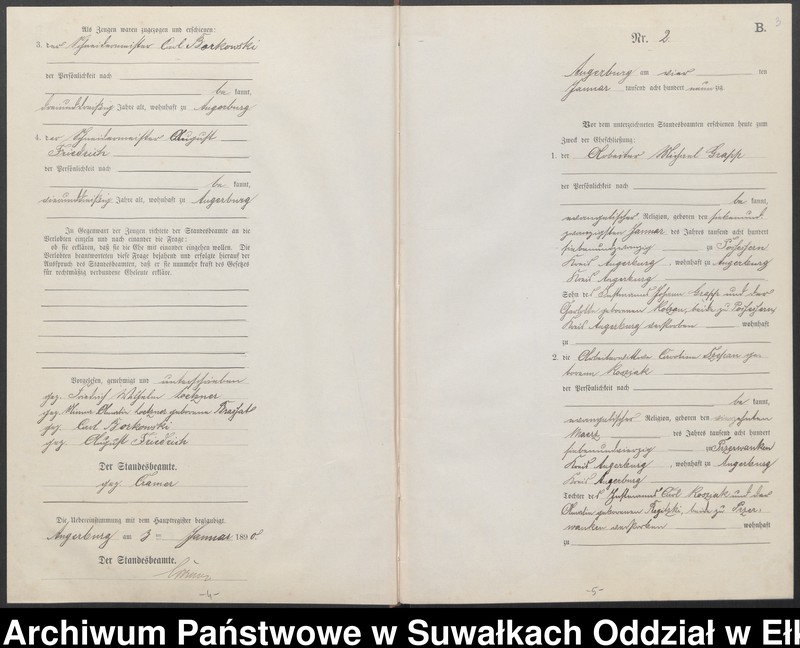 Als Zeugen waren zugezogen und erschienen:
3. der Schneidermeister Carl Borkowski
der Persönlichkeit nach
be kannt,
dreiunddreißig Jahre alt, wohnhaft zu Angerburg
4. der Schneidermeister August
Friedrich
der Persönlichkeit nach
be kannt,
vierunddreißig Jahre alt, wohnhaft zu Angerburg
In Gegenwart der Zeugen richtete der Standesbeamte an die
Verlobten einzeln und nach einander die Frage:
ob sie erklären, daß sie die Ehe mit einander eingehen wollen. Die
Verlobten beantworteten diese Frage bejahend und erfolgte hierauf der
Ausspruch des Standesbeamten, daß er sie nunmehr kraft des Gesetzes
für rechtmäßig verbundene Eheleute erkläre.
Vorgelesen, genehmigt und unterschrieben
gez. Friedrich Wilhelm Lockner
gez. Minna Amalie Lockner geborene
gez. Carl Borkowski
gez. August Friedrich
Der Standesbeamte.
gez. Cramer
Die Uebereinstimmung mit dem Hauptregister beglaubigt.
Angerburg am 3 ten Januar 1890
Der Standesbeamte.
-4-
B.
3
Nr. 2.
Angerburg am vier ten
Januar tausend acht hundert neunzig.
Vor dem unterzeichneten Standesbeamten erschienen heute zum
Zweck der Eheschließung:
1. der Arbeiter Michael Grapp
der Persönlichkeit nach
be kannt,
evangelischer Religion, geboren den siebenund-
zwanzigsten Januar des Jahres tausend acht hundert
zu
Kreis Angerburg, wohnhaft zu Angerburg
Kreis Angerburg
Sohn des Instmanns Johann Grapp und der
Charlotte geborenen beide zu
Kreis Angerburg verstorben wohnhaft
zu
2. die Arbeiterwittwe Caroline ge-
borene Kossiak
der Persönlichkeit nach
be kannt,
evangelischer Religion, geboren den
Maerz des Jahres tausend acht hundert
siebenundvierzig zu Przerwanken
Kreis Angerburg, wohnhaft zu Angerburg
Kreis Angerburg
Tochter des Instmanns Carl Kossiak und der
Amalie geborenen beide zu Przer-
wanken verstorben wohnhaft
zu
-5-
Archiwum Państwowe w Suwałkach Oddział w Ełk